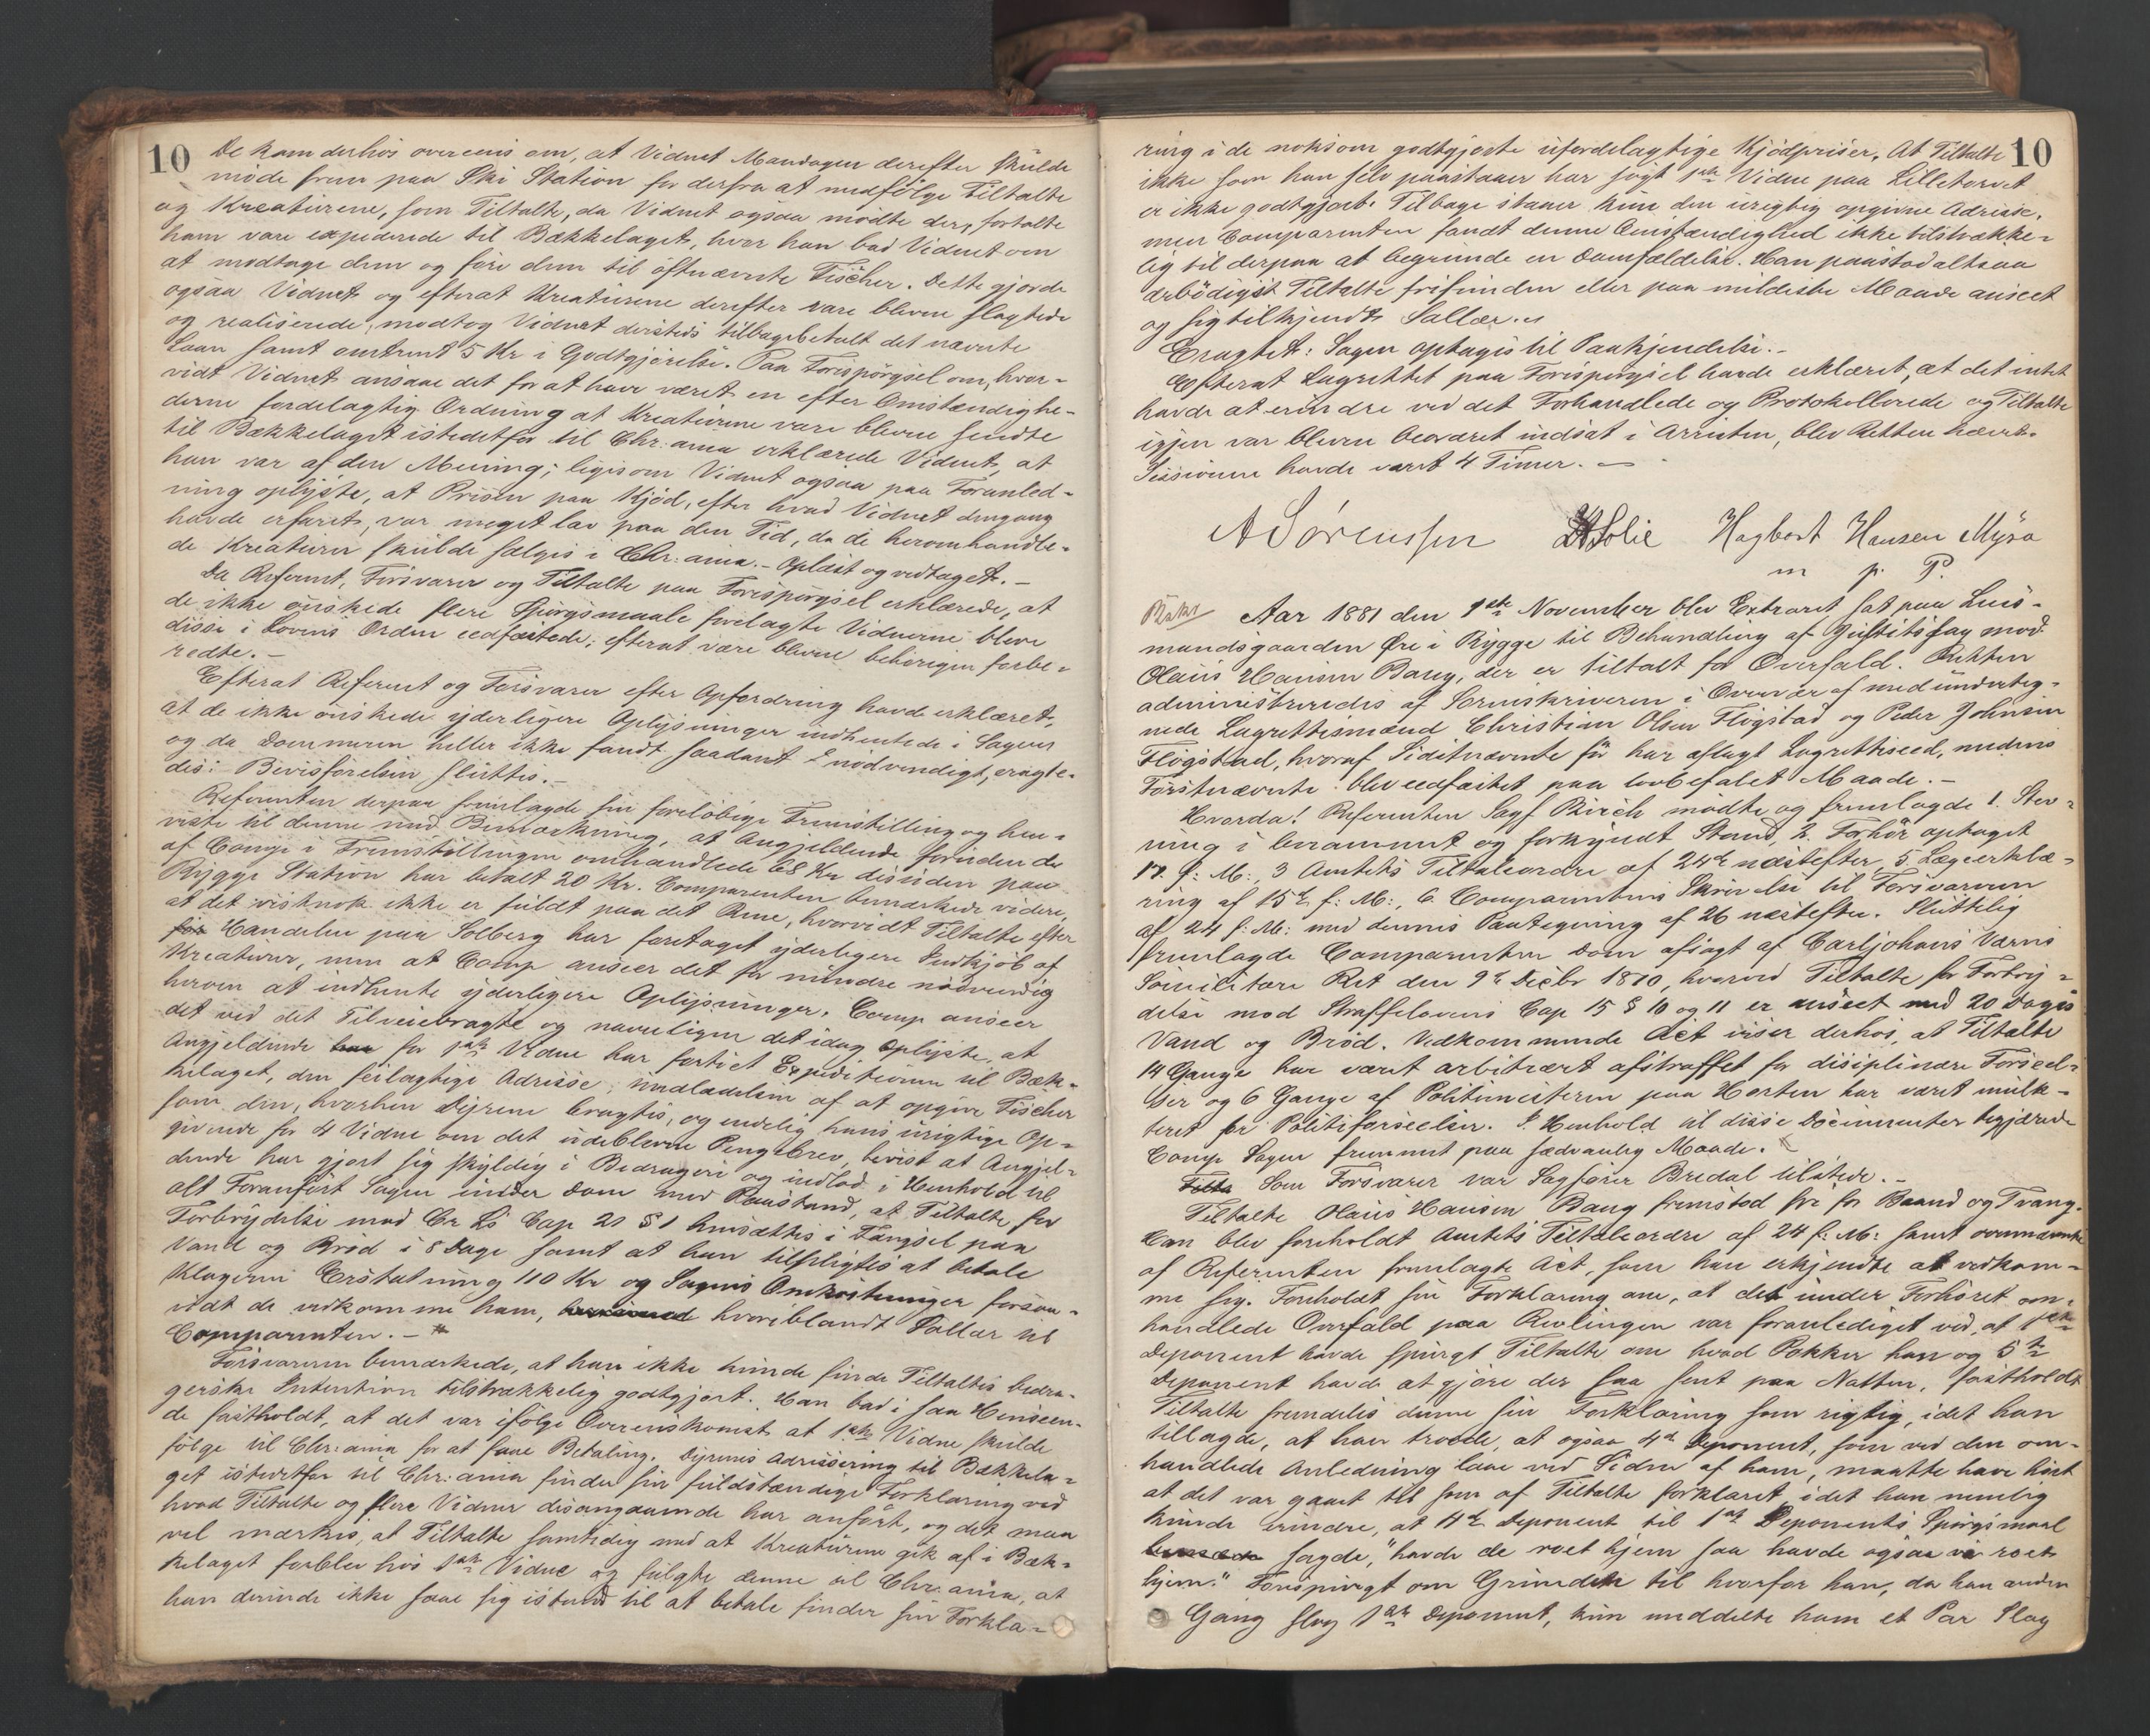 10
De kom derhos overens om, at Vidnet Mandagen derefter skulde
møde frem paa Ski Station for derfra at medfølge Tiltalte
og Kreaturene, som Tiltalte, da Vidnet ogsaa mødte der, fortalte
ham vare expederede til Bækkelaget, hvor han bad Vidnet om
at modtage dem og føre dem til oftnævnte Fischer. Dette gjorde
ogsaa Vidnet og efterat Kreaturene derefter vare blevne slagtede
og realiserede, modtog Vidnet dersteds tilbagebetalt det nævnte
Laan samt omtrent 5 Kr i Godtgjørelse. Paa Forespørgsel om, hvor-
vidt Vidnet ansaae det for at have været en efter Omstændighe-
derne fordelagtig Ordning at Kreaturene vare blevne sendte
til Bækkelaget istedetfor til Chr:ania erklærede Vidnet, at
han var af den Mening; ligesom Vidnet ogsaa paa Foranled-
ning oplyste, at Prisen paa Kjød, efter hvad Vidnet dengang
havde erfaret, var meget lav paa den Tid, da de heromhandle-
de Kreaturer skulde sælges i Chr:ania. - Oplæst og vedtaget. -
Da Referent, Forsvarer og Tiltalte paa Forespørgsel erklærede, at
de ikke ønskede flere Spørgsmaale forelagte Vidnerne bleve
disse i Lovens Orden eedfæstede, efterat være blevne behørigen forbe-
redte. -
Efterat Referent og Forsvarer efter Opfordring havde erklæret,
at de ikke ønskede yderligere Oplysninger indhentede i Sagen
og da Dommeren heller ikke fandt saadant nødvendigt, eragte-
des: Bevisførelsen sluttes. -
Referenten derpaa fremlagde sin foreløbige Fremstilling og hen-
viste til denne med Bemærkning, at Angjeldende forinden de
af Comp i Fremstillingen omhandlede 68 Kr desuden paa
Rygge Station har betalt 20 Kr. Comparenten bemærkede videre,
at det vistnok ikke er fuldt paa det Rene, hvorvidt Tiltalte efter
før Handelen paa Solberg har foretaget yderligere Indkjøb af
Kreaturer, men at Comp anseer det for mindre nødvendig
herom at indhente yderligere Oplysninger. Comp anseer
det ved det Tilveiebragte og navnligen det idag Oplyste, at
Angjeldende for 1ste Vidne har fortiet Expeditionen til Bæk-
kelaget, den feilagtige Adresse, undladelsen af at opgive Fischer
som den, hvorhen Dyrene bragtes, og endelig hans urigtige Op-
givende for 4 Vidne om det udeblevne Pengebrev, bevist at Angjel-
dende har gjort sig skyldig i Bedrageri og indlod i Henhold til
alt Foranført Sagen under Dom med Paastand, at Tiltalte for
Forbrydelse mod Cr Ls Cap 21 § 1 hensættes i Fængsel paa
Vand og Brød i 8 Dage samt at han tilpligtes at betale
Klageren Erstatning 110 Kr og Sagens Omkostninger forsaa-
vidt de vedkomme ham, hvoriblandt Sallær til
Comparenten. -
Forsvareren bemærkede, at han ikke kunde finde Tiltaltes bedra-
gerske Intention tilstrækkelig godtgjort. Han bad i saa Henseen-
de fastholdt, at det var ifølge Overenskomst at 1ste Vidne skulde
følge til Chr:ania for at faae Betaling. Dyrenes Adressering til Bækkela-
get istedetfor til Chr:ania finder sin fuldstændige Forklaring ved
hvad Tiltalte og flere Vidner desangaaende har anført, og det maa
vel mærkes, at Tiltalte samtidig med at Kreaturene gik af i Bæk-
kelaget forblev hos 1ste Vidne og fulgte denne til Chr:ania, at
han derinde ikke saae sig istand til at betale finder sin Forkla-
10
ring i de noksom godtgjorte ufordelagtige Kjødpriser. At Tiltalte
ikke som han selv paastaaer har søgt 1ste Vidne paa Lilletorvet
er ikke godtgjort. Tilbage staaer kun den urigtig opgivne Adresse,
men Comparenten fandt denne Omstændighed ikke tilstrække-
lig til derpaa at begrunde en Domfældelse. Han paastod altsaa
ærbødigst Tiltalte frifunden eller paa mildeste Maade anseet
og sig tilkjendt Sallær.
Eragtet: Sagen optages til Paakjendelse. -
Efterat Lagrettet paa Forespørgsel havde erklæret, at det intet
havde at erindre ved det Forhandlede og Protokollerede og Tiltalte
igjen var bleven bevaret indsat i Arresten, blev Retten hævet.
Sessionen havde varet 4 Timer. -
A Sørenssen Solie Hagbart Hansen Myra
m p. P.
Aar 1881 den 1ste November blev Extraret sat paa Lens-
mandsgaarden Øre i Rygge til Behandling af Justitssag mod
Olaus Hansen Baug, der er tiltalt for Overfald. Retten
administreredes af Sorenskriveren i Overvær af medunderteg-
nede Lagrettesmænd Christian Olsen Flogstad og Peder Johnsen
Flogstad, hvoraf Sidstnævnte før har aflagt Lagretteseed, medens
Førstnævnte blev eedfæstet paa lovbefalet Maade. -
Hvorda! Referenten Sagf Birch mødte og fremlagde 1. Stev-
ning i berammet og forkyndt Stand, 2. Forhør optaget
17. f: M:, 3 Amtets Tiltaleordre af 24de næstefter, 5. Lægeerklæ-
ring af 15de f: M:, 6. Comparentens Skrivelse til Forsvareren
af 24 f: M: med dennes Paategning af 26 næstefter. Sluttelig
fremlagde Comparenten Dom afsagt af Carljohans Værns
Sømilitære Ret den 9de Decbr 1870, hvorved Tiltalte for Forbry-
delse mod Straffelovens Cap 15 § 10 og 11 er anseet med 20 Dages
Vand og Brød. Vedkommende Act viser derhos, at Tiltalte
14 Gange har været arbitrært afstraffet for disiplinære Forseel-
ser og 6 Gange af Politimesteren paa Horten har været mulk-
teret for Politiforseelser. I Henhold til disse Documenter begjærede
Comp Sagen fremmet paa sædvanlig Maade.
Som Forsvarer var Sagfører Bredal tilstede. -
Tiltalte Olaus Hansen Baug fremstod fri for Baand og Tvang.
Han blev foreholdt Amtets Tiltaleordre af 24 f: M: samt ovennævnte
af Referenten fremlagte Act, som han erkjendte at vedkom-
me sig. Foreholdt sin Forklaring ang, at det under Forhøret om-
handlede Overfald paa Revlingen var foranlediget ved, at 1ste
Deponent havde spurgt Tiltalte om hvad Pokker han og 5te
Deponent havde at gjøre der saa sent paa Natten, fastholdt
Tiltalte fremdeles denne sin Forklaring som rigtig, idet han
tillagde, at han troede, at ogsaa 4de Deponent, som ved den om-
handlede Anledning laae ved Siden af ham, maatte have hørt
at det var gaaet til som af Tiltalte forklaret, idet han nemlig
kunde erindre, at 4de Deponent til 1ste Deponents Spørgsmaal
sagde, "havde de roet hjem saa havde ogsaa vi roet
hjem." Forespurgt om Grunden til hvorfor han, da han anden
Gang slog 1ste Deponent, kun meddelte ham et Par Slag